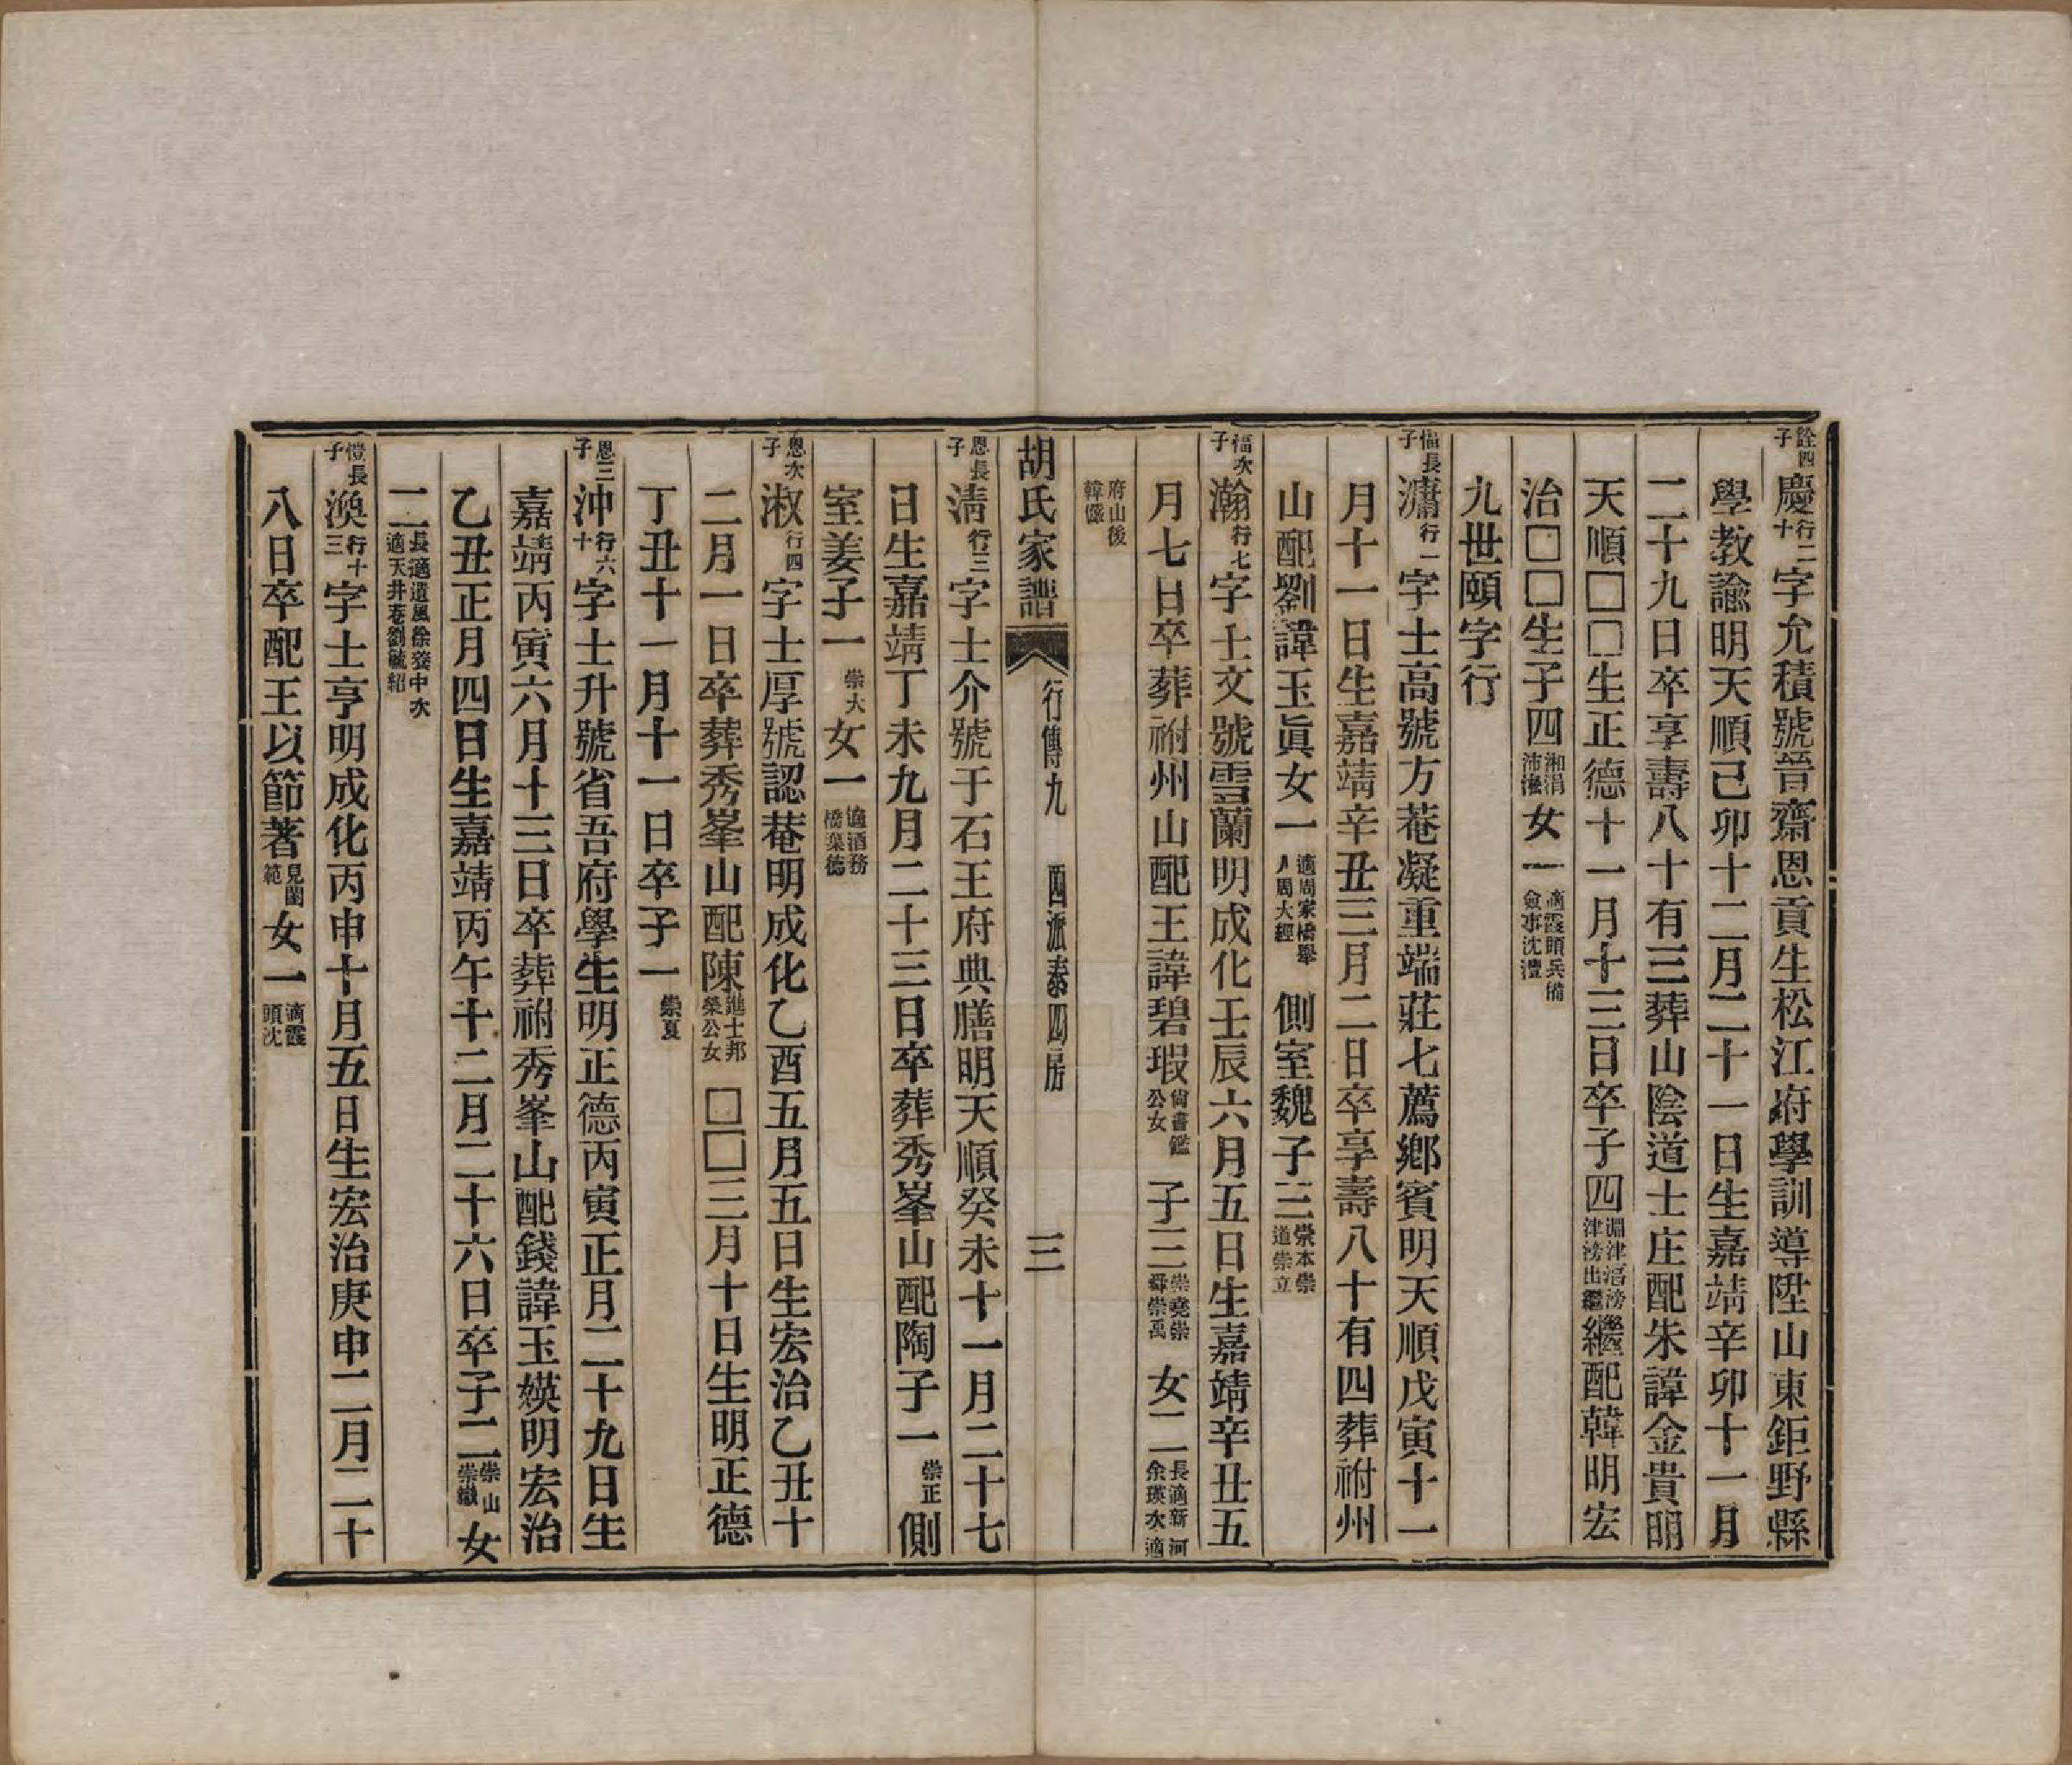 詮四子慶行二十字允積號晉齋恩貢生松江府學訓導陞山東鉅野縣
學教諭明天順己卯十二月二十一日生嘉靖辛卯十一月
二十九日卒享壽八十有三葬山陰道士庄配朱諱金貴明
天順□□生正德十一月十三日卒子四淵津滘滂津滂出繼繼配韓明宏
治□□生子四湘涓沛㴋女一適霞頭兵備僉事沈澧
九世頤字行
愊長子瀟行一字士高號方菴凝重端莊七薦鄉賓明天順戊寅十一
月十一日生嘉靖辛丑三月二日卒享壽八十有四葬祔州
山配劉諱玉眞女一適周家橋舉人周大經側室魏子三崇本崇道崇立
愊次子瀚行七字士文號雪蘭明成化壬辰六月五日生嘉靖辛丑五
月七日卒葬祔州山配王諱碧瑕尙書鑑公女子三崇堯崇舜崇禹女二長適新河余瑛次適
府山後韓儼
胡氏家譜 行傳九 西派泰四房 三
恩長子淸行三字士介號于石王府典膳明天順癸未十一月二十七
日生嘉靖丁未九月二十三日卒葬秀峯山配陶子一崇正側
室姜子一崇大女一適酒務橋葉德
恩次子淑行四字士厚號認菴明成化乙酉五月五日生宏治乙丑十
二月一日卒葬秀峯山配陳進士邦榮公女□□三月十日生明正德
丁丑十一月十一日卒子一崇夏
恩三子沖行六十字士升號省吾府學生明正德丙寅正月二十九日生
嘉靖丙寅六月十三日卒葬祔秀峯山配錢諱玉媖明宏治
乙丑正月四日生嘉靖丙午十二月二十六日卒子二崇山崇嶽女
二長適遺風徐發中次適天井巷劉毓紹
憕長子渙行十三字士亨明成化丙申十月五日生宏治庚申二月二十
八日卒配王以節著見閫範女一適霞頭沈